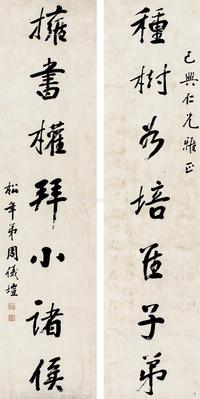 種樹如培佳子弟
仁兄雅正
擁書權拜小諸侯
松年弟周儀